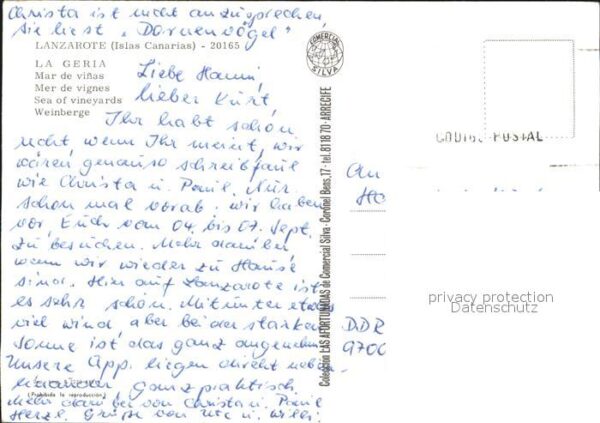 Christa ist nicht anzusprechen,
sie liest „Dornenvögel"
LANZAROTE (Islas Canarias) - 20165
LA GERIA
Mar de viñas
Mer de vignes
Sea of vineyards
Weinberge
Liebe Hanni,
lieber Kurt,
Ihr habt schön
recht, wenn Ihr meint, wir
wären genauso schreibfaul
wie Christa u. Paul. Nur
schon mal vorab. wir haben
vor, Euch vom 04. bis 07. Sept.
zu besuchen. Mehr darüber
wenn wir wieder zu Hause
sind. Hier auf Lanzarote ist
es sehr schön. Mitunter etwas
viel wind, aber bei der starken
Sonne ist das ganz angenehm.
Unsere App. liegen direkt neben
ganz praktisch
(Prohibida la reproducción)
Mehr darüber von Christa u. Paul
Herzl. Grüße von Ute u. Willi
COMERCIAL
SILVA
Colección LAS AFORTUNADAS de Comercial Silva - Cordinel Bens, 17 - tel. 81 18 70 - ARRECIFE
CODIGO POSTAL
An
DDR
9700
privacy protection
Datenschutz